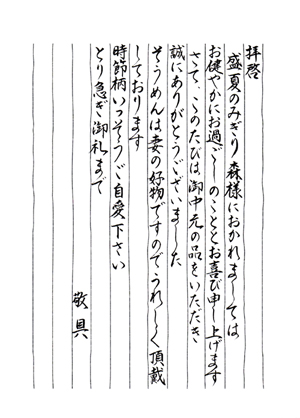 拝啓
盛夏のみぎり森様におかれましては
お健やかにお過ごしのこととお喜び申し上げます
さて、このたびは御中元の品をいただき
誠にありがとうございました
そうめんは妻の好物ですのでうれしく頂戴
しております
時節柄いっそうご自愛下さい
とり急ぎ御礼まで
敬具